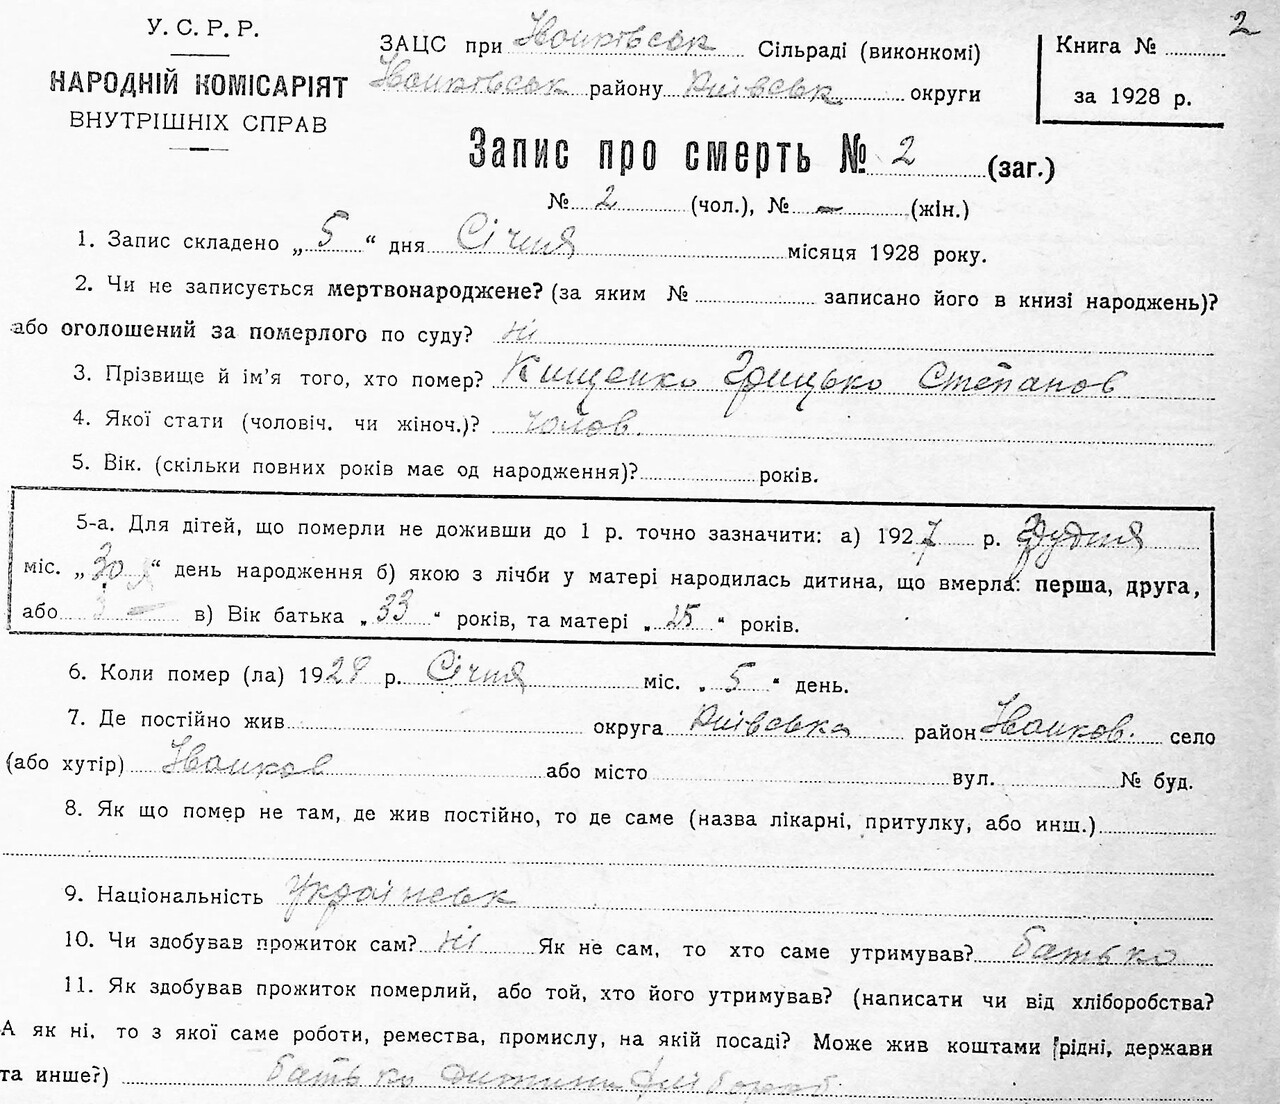 2
У. С. Р. Р.
НАРОДНІЙ КОМІСАРІЯТ
ВНУТРІШНІХ СПРАВ
ЗАЦС при Іванківськ Сільраді (виконкомі)
Іванківськ району Київськ округи
Книга №
за 1928 р.
Запис про смерть № 2 (заг.)
№ 2 (чол.), № — (жін.)
1. Запис складено „ 5 “ дня Січня місяця 1928 року.
2. Чи не записується мертвонароджене? (за яким № записано його в книзі народжень)?
або оголошений за померлого по суду? ні
3. Прізвище й ім’я того, хто помер? Кищенко Грицько Степанов
4. Якої стати (чоловіч. чи жіноч.)? чолов.
5. Вік. (скільки повних років має од народження)? років.
5-а. Для дітей, що померли не доживши до 1 р. точно зазначити: а) 1927 р. Грудня
міс. „ 30 “ день народження б) якою з лічби у матері народилась дитина, що вмерла: перша, друга,
або 3 — в) Вік батька „ 33 “ років, та матері „ 25 “ років.
6. Коли помер (ла) 1928 р. Січня міс. „ 5 “ день.
7. Де постійно жив округа Київська район Іванков. село
(або хутір) Іванков або місто вул. № буд.
8. Як що помер не там, де жив постійно, то де саме (назва лікарні, притулку, або инш.)
9. Національність Українськ
10. Чи здобував прожиток сам? ні Як не сам, то хто саме утримував? батько
11. Як здобував прожиток померлий, або той, хто його утримував? (написати чи від хліборобства?
А як ні, то з якої саме роботи, ремества, промислу, на якій посаді? Може жив коштами рідні, держави
та инше?) батько дитини хлібороб